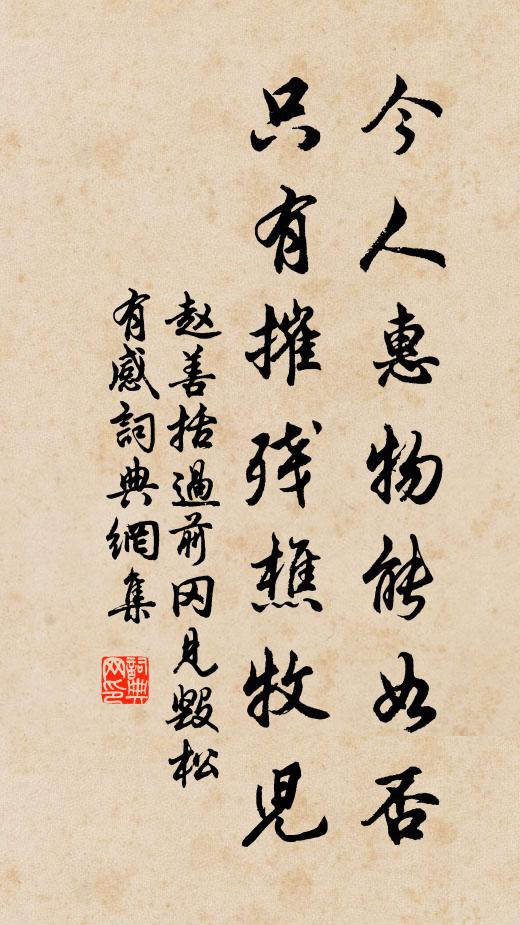 今人惠物能如否
只有摧残樵牧児
赵善括過前冈見毁松
有感詞典網集
詞典网印